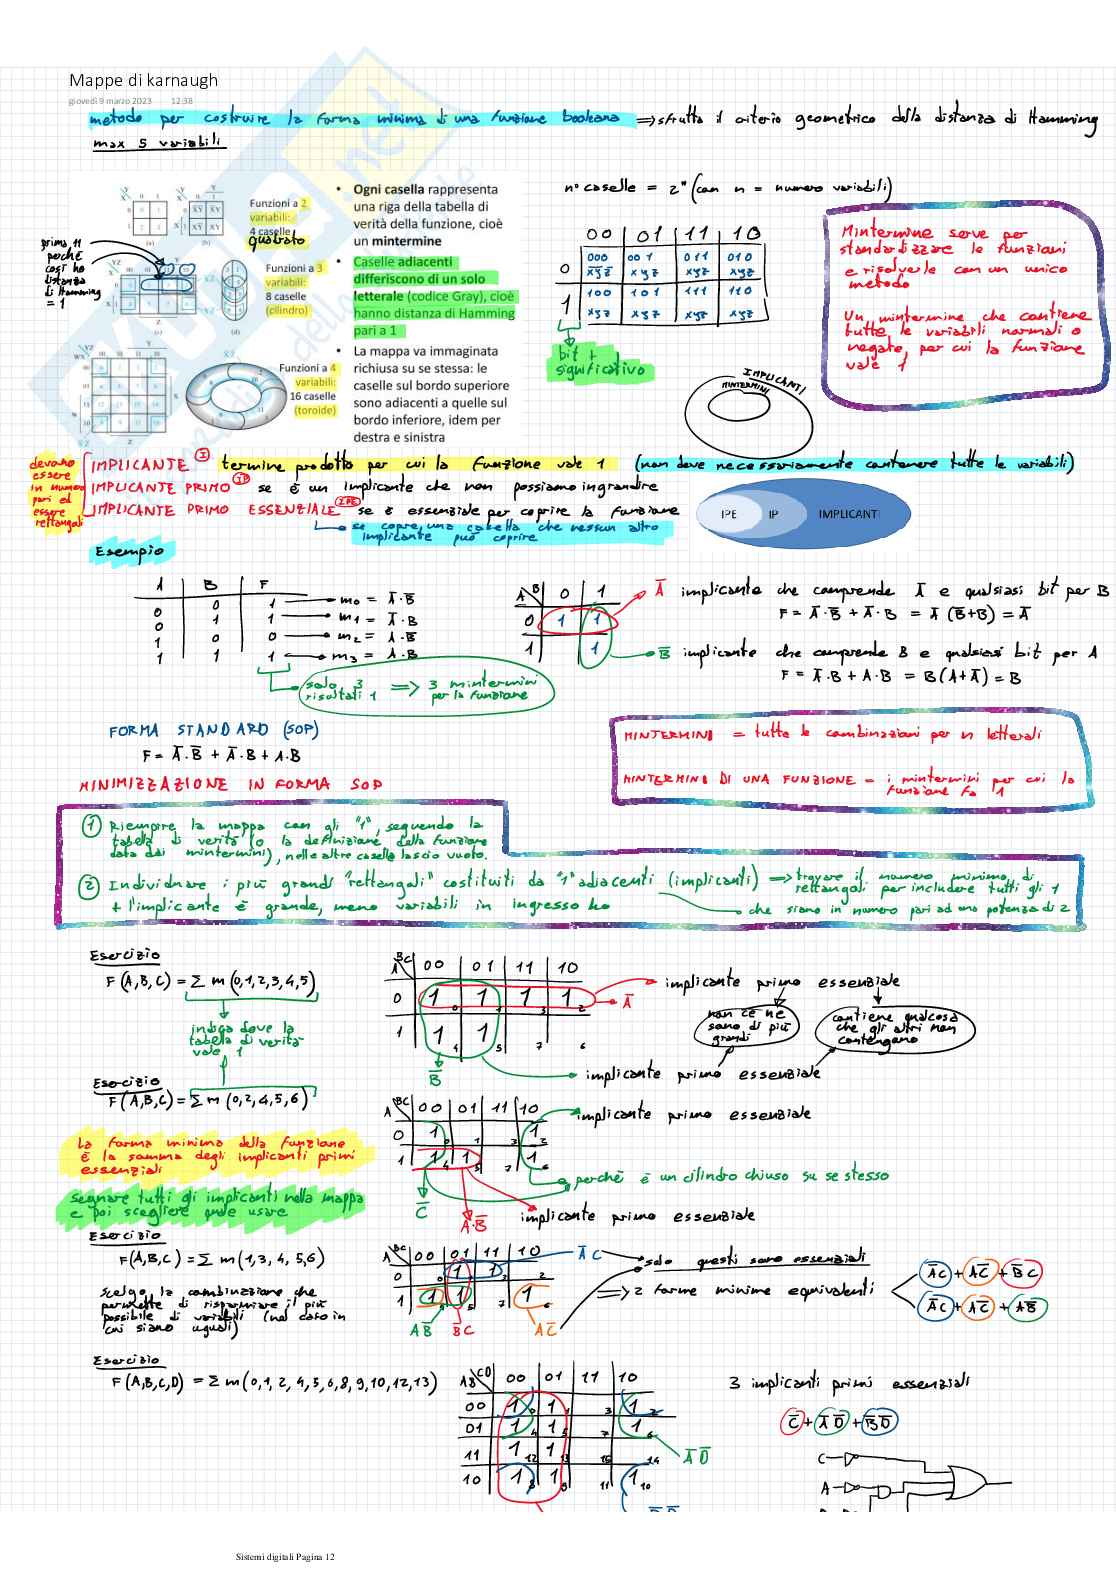 Mappe di karnaugh
giovedì 9 marzo 2023 12:38
metodo per costruire la forma minima di una funzione booleana => sfrutta il criterio geometrico della distanza di Hamming
max 5 variabili
prima 11
perché
così ho
distanza
di Hamming
= 1
Funzioni a 2
variabili:
4 caselle
quadrato
Funzioni a 3
variabili:
8 caselle
(cilindro)
Funzioni a 4
variabili:
16 caselle
(toroide)
• Ogni casella rappresenta
una riga della tabella di
verità della funzione, cioè
un mintermine
• Caselle adiacenti
differiscono di un solo
letterale (codice Gray), cioè
hanno distanza di Hamming
pari a 1
• La mappa va immaginata
richiusa su se stessa: le
caselle sul bordo superiore
sono adiacenti a quelle sul
bordo inferiore, idem per
destra e sinistra
n° caselle = 2ⁿ (con n = numero variabili)
00 01 11 10
0 000 001 011 010
xyz xyz xyz xyz
1 100 101 111 110
xyz xyz xyz xyz
bit +
significativo
Mintermine serve per
standardizzare le funzioni
e risolverle con un unico
metodo
Un mintermine che contiene
tutte le variabili normali o
negate, per cui la funzione
vale 1
IMPLICANTI
MINTERMINI
devono
essere
in numero
pari ed
essere
rettangoli
IMPLICANTE (I) termine prodotto per cui la funzione vale 1 (non deve necessariamente contenere tutte le variabili)
IMPLICANTE PRIMO (IP) se è un implicante che non possiamo ingrandire
IMPLICANTE PRIMO ESSENZIALE (IPE) se è essenziale per coprire la funzione
se copre una casella che nessun altro
implicante può coprire
IPE IP IMPLICANTI
Esempio
A B F
0 0 1 → m₀ = A̅·B̅
0 1 1 → m₁ = A̅·B
1 0 0 → m₂ = A·B̅
1 1 1 → m₃ = A·B
solo 3
risultati 1 => 3 mintermini
per la funzione
A B 0 1
0 1 1
1 1
A̅ implicante che comprende A̅ e qualsiasi bit per B
F = A̅·B̅ + A̅·B = A̅ (B̅+B) = A̅
B̅ implicante che comprende B e qualsiasi bit per A
F = A̅·B + A·B = B(A+A̅) = B
FORMA STANDARD (SOP)
F = A̅·B̅ + A̅·B + A·B
MINIMIZZAZIONE IN FORMA SOP
MINTERMINI = tutte le combinazioni per n letterali
MINTERMINI DI UNA FUNZIONE = i mintermini per cui la
funzione fa 1
① Riempire la mappa con gli "1", seguendo la
tabella di verità (o la definizione della funzione
data dai mintermini), nelle altre caselle lascio vuoto.
② Individuare i più grandi "rettangoli" costituiti da "1" adiacenti (implicanti) => trovare il numero minimo di
rettangoli per includere tutti gli 1
+ l'implicante è grande, meno variabili in ingresso ho
che siano in numero pari ad una potenza di 2
Esercizio
F(A,B,C) = Σ m(0,1,2,3,4,5)
indica dove la
tabella di verità
vale 1
A BC 00 01 11 10
0 1 0 1 1 1 3 1 2
1 1 4 1 5 7 6
A̅
B̅
implicante primo essenziale
non ce ne
sono di più
grandi
contiene qualcosa
che gli altri non
contengono
implicante primo essenziale
Esercizio
F(A,B,C) = Σ m(0,2,4,5,6)
A BC 00 01 11 10
0 1 0 1 3 1 2
1 1 4 1 5 7 1 6
implicante primo essenziale
perché è un cilindro chiuso su se stesso
C̅
A·B̅
implicante primo essenziale
La forma minima della funzione
è la somma degli implicanti primi
essenziali
segnare tutti gli implicanti nella mappa
e poi scegliere quale usare
Esercizio
F(A,B,C) = Σ m(1,3,4,5,6)
scelgo la combinazione che
permette di risparmiare il più
possibile di variabili (nel caso in
cui siano uguali)
A BC 00 01 11 10
0 0 1 1 1 3 2
1 1 4 1 5 7 1 6
A̅C
AB̅
B̅C
AC̅
solo questi sono essenziali
=> 2 forme minime equivalenti
A̅C + AC̅ + B̅C
A̅C + AC̅ + AB̅
Esercizio
F(A,B,C,D) = Σ m(0,1,2,4,5,6,8,9,10,12,13)
AB CD 00 01 11 10
00 1 0 1 1 3 1 2
01 1 4 1 5 7 1 6
11 1 12 1 13 15 14
10 1 8 1 9 11 1 10
A̅D̅
3 implicanti primi essenziali
C̅ + A̅D̅ + B̅D̅
C
A
Sistemi digitali Pagina 12